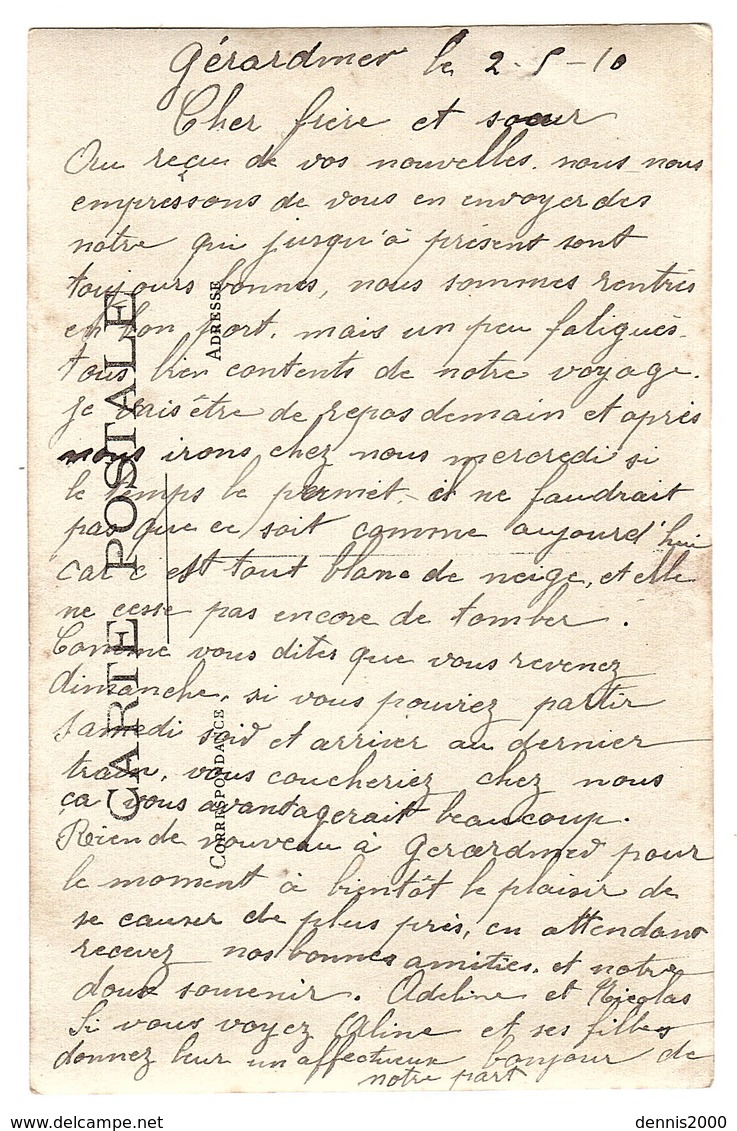 Gérardmer le 2-5-10
Cher frère et sœur
Ou reçu de vos nouvelles. nous nous
empressons de vous en envoyer des
notre qui jusqu'à présent sont
toujours bonnes, nous sommes rentrés
en bon port, mais un peu fatigués.
tous bien contents de notre voyage.
je vais être de repos demain et après
nous irons chez nous mercredi si
le temps le permet, il ne faudrait
pas que ce soit comme aujourd'hui
car c'est tout blanc de neige, et elle
ne cesse pas encore de tomber.
Comme vous dites que vous revenez
dimanche, si vous pouviez partir
samedi soir et arriver au dernier
train, vous coucheriez chez nous
ça vous avantagerait beaucoup.
Rien de nouveau à Gerardmer pour
le moment à bientôt le plaisir de
se causer de plus près, en attendant
recevez nos bonnes amitiés. et notre
doux souvenir. Adeline et Nicolas
Si vous voyez Aline et ses filles
donnez leur un affectueux bonjour de
notre part
CARTE POSTALE
ADRESSE
CORRESPONDANCE
dennis2000